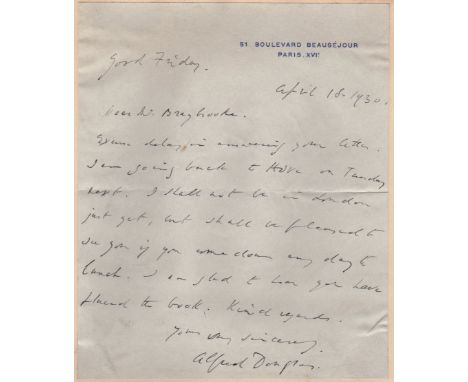 51 BOULEVARD BEAUSÉJOUR
PARIS. XVI
Good Friday.
April 18. 1930.
Dear Mr Braybrooke.
Excuse delay in answering your letter.
I am going back to Hove on Tuesday
next. I shall not be in London
just yet, but shall be pleased to
see you if you come down any day to
lunch. I am glad to hear you have
the book. Kind regards.
Yours very sincerely.
Alfred Douglas.